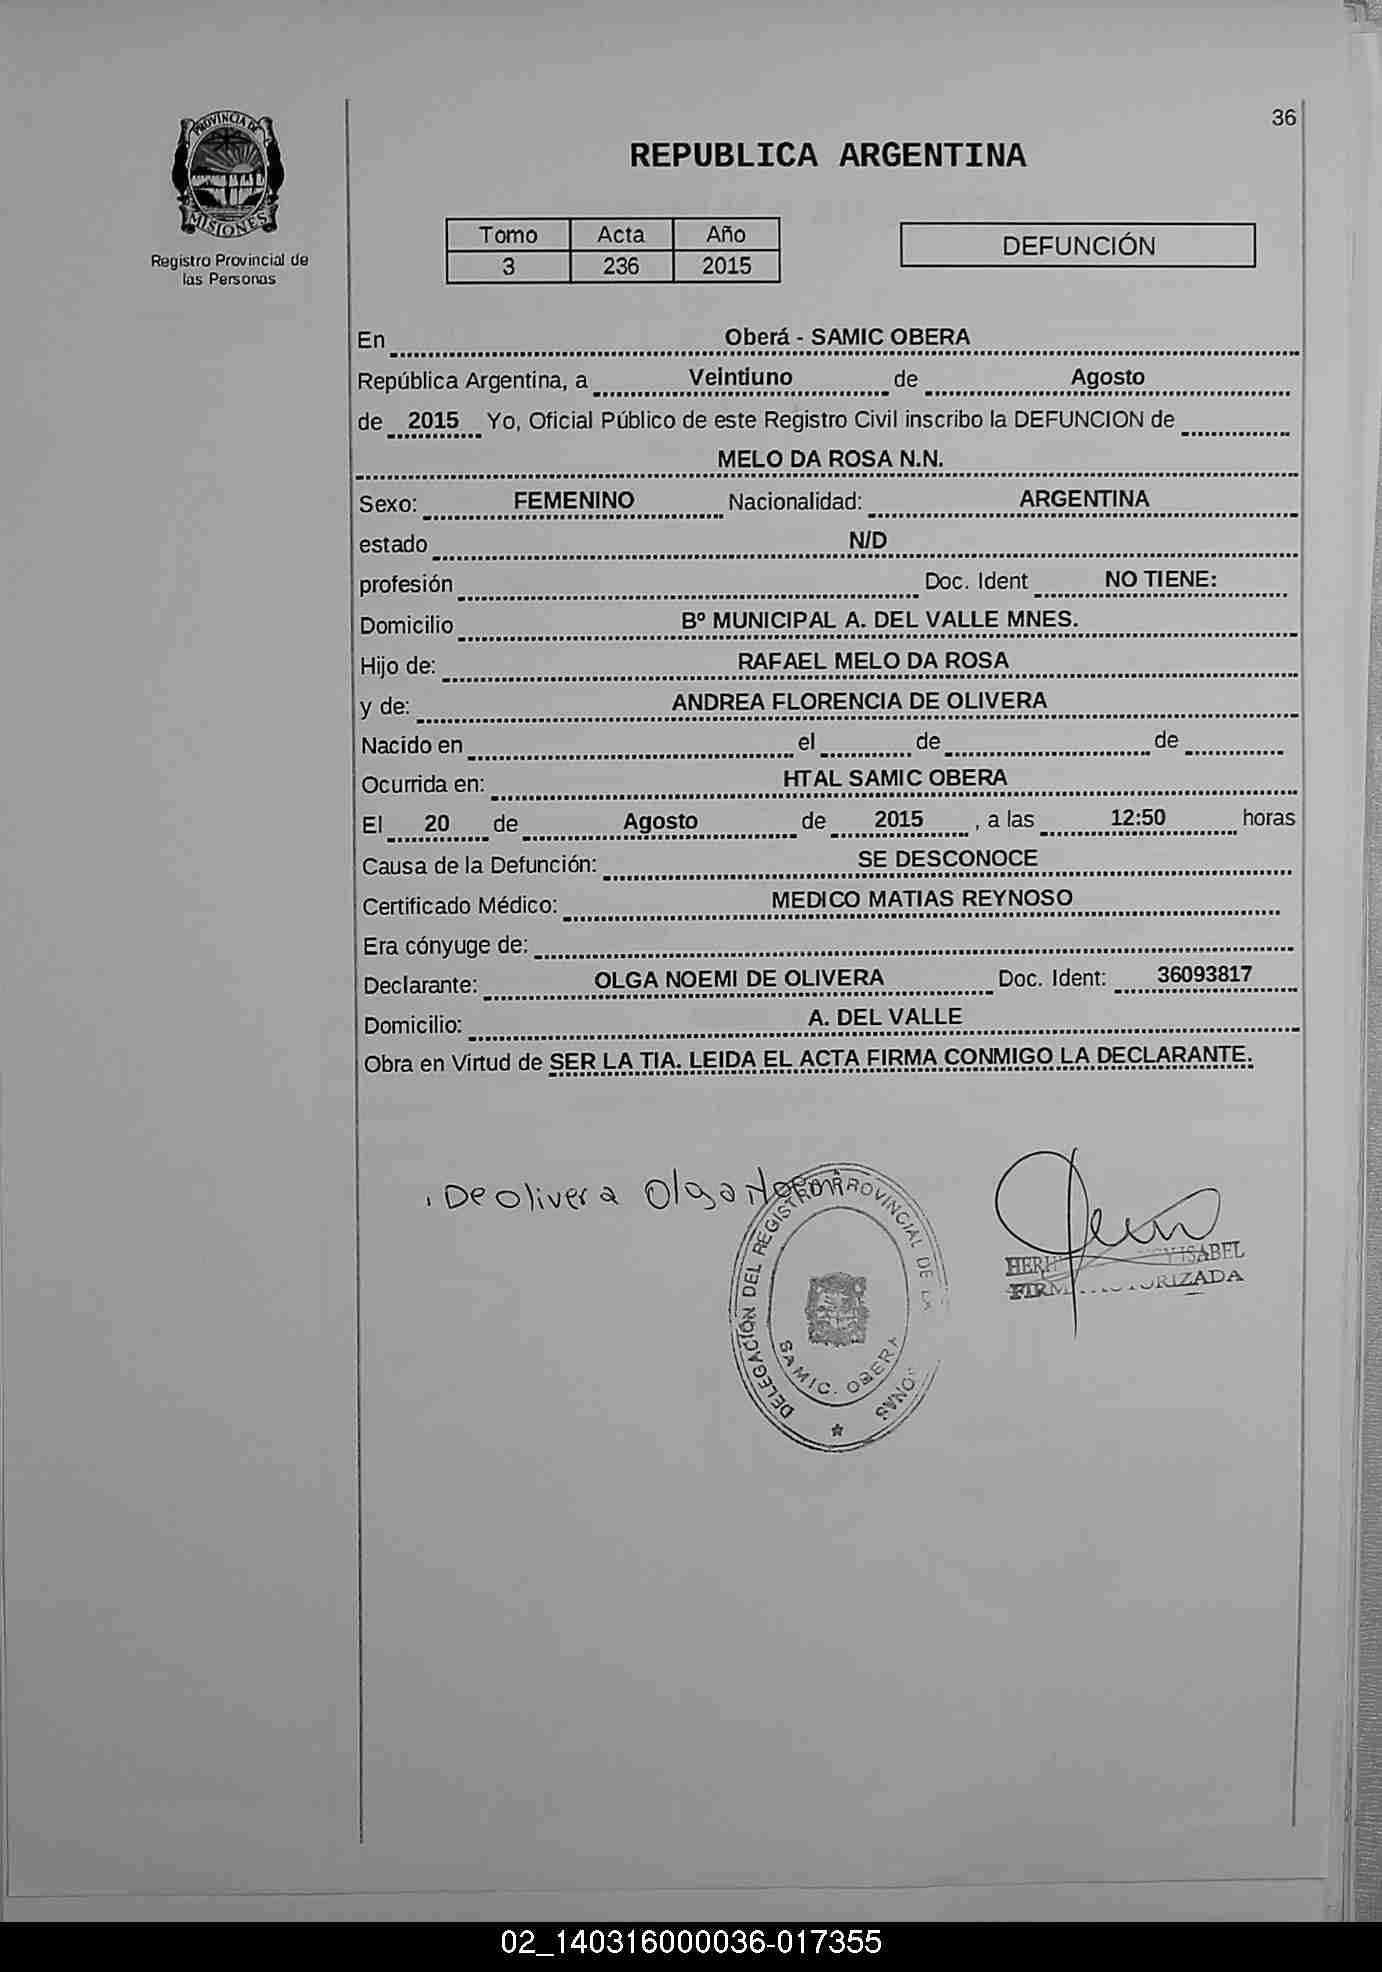 36
PROVINCIA DE
MISIONES
Registro Provincial de
las Personas
REPUBLICA ARGENTINA
Tomo Acta Año
3 236 2015
DEFUNCIÓN
En Oberá - SAMIC OBERA
República Argentina, a Veintiuno de Agosto
de 2015 Yo, Oficial Público de este Registro Civil inscribo la DEFUNCION de
MELO DA ROSA N.N.
Sexo: FEMENINO Nacionalidad: ARGENTINA
estado N/D
profesión Doc. Ident NO TIENE:
Domicilio Bº MUNICIPAL A. DEL VALLE MNES.
Hijo de: RAFAEL MELO DA ROSA
y de: ANDREA FLORENCIA DE OLIVERA
Nacido en el de de
Ocurrida en: HTAL SAMIC OBERA
El 20 de Agosto de 2015 , a las 12:50 horas
Causa de la Defunción: SE DESCONOCE
Certificado Médico: MEDICO MATIAS REYNOSO
Era cónyuge de:
Declarante: OLGA NOEMI DE OLIVERA Doc. Ident: 36093817
Domicilio: A. DEL VALLE
Obra en Virtud de SER LA TIA. LEIDA EL ACTA FIRMA CONMIGO LA DECLARANTE.
De Olivera Olga Noemi
DELEGACIÓN DEL REGISTRO PROVINCIAL DE LA
SAMIC. OBERA
ISABEL
FIRMA AUTORIZADA
02_140316000036-017355